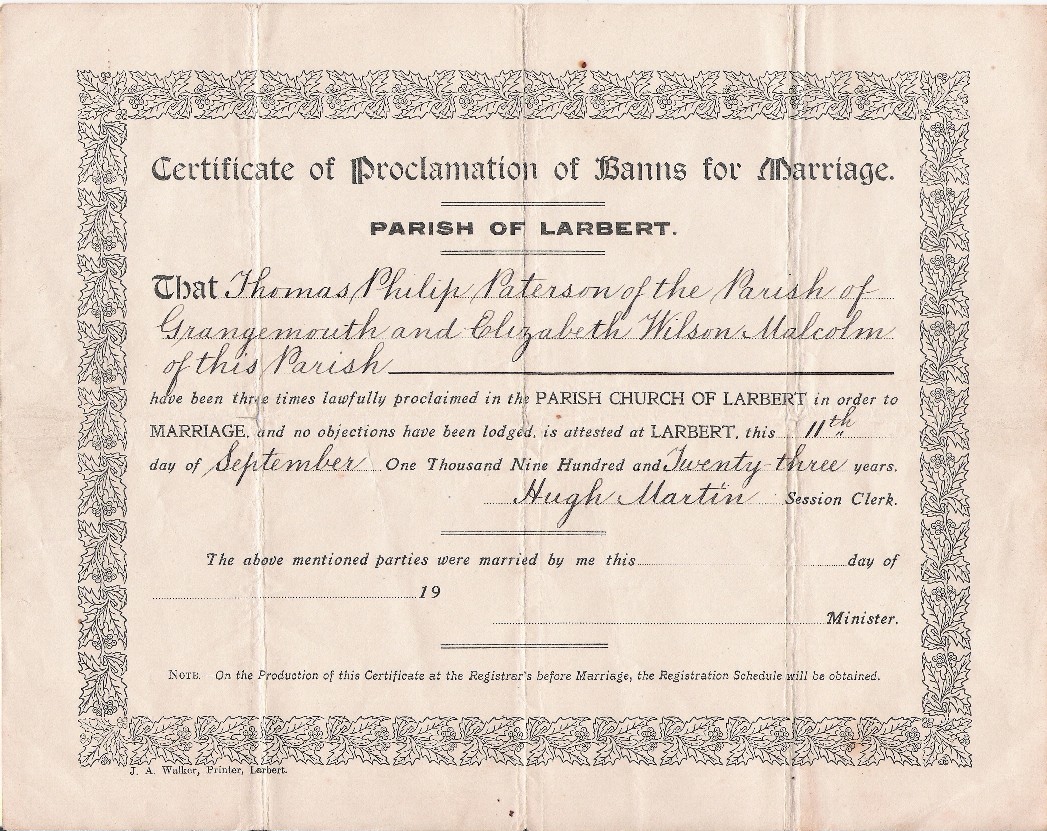 Certificate of Proclamation of Banns for Marriage.
PARISH OF LARBERT.
That Thomas Philip Paterson of the Parish of
Grangemouth and Elizabeth Wilson Malcolm
of this Parish
have been three times lawfully proclaimed in the PARISH CHURCH OF LARBERT in order to
MARRIAGE, and no objections have been lodged, is attested at LARBERT, this 11th
day of September One Thousand Nine Hundred and Twenty-three years.
Hugh Martin Session Clerk.
The above mentioned parties were married by me this day of
19
Minister.
NOTE. On the Production of this Certificate at the Registrar's before Marriage, the Registration Schedule will be obtained.
J. A. Walker, Printer, Larbert.